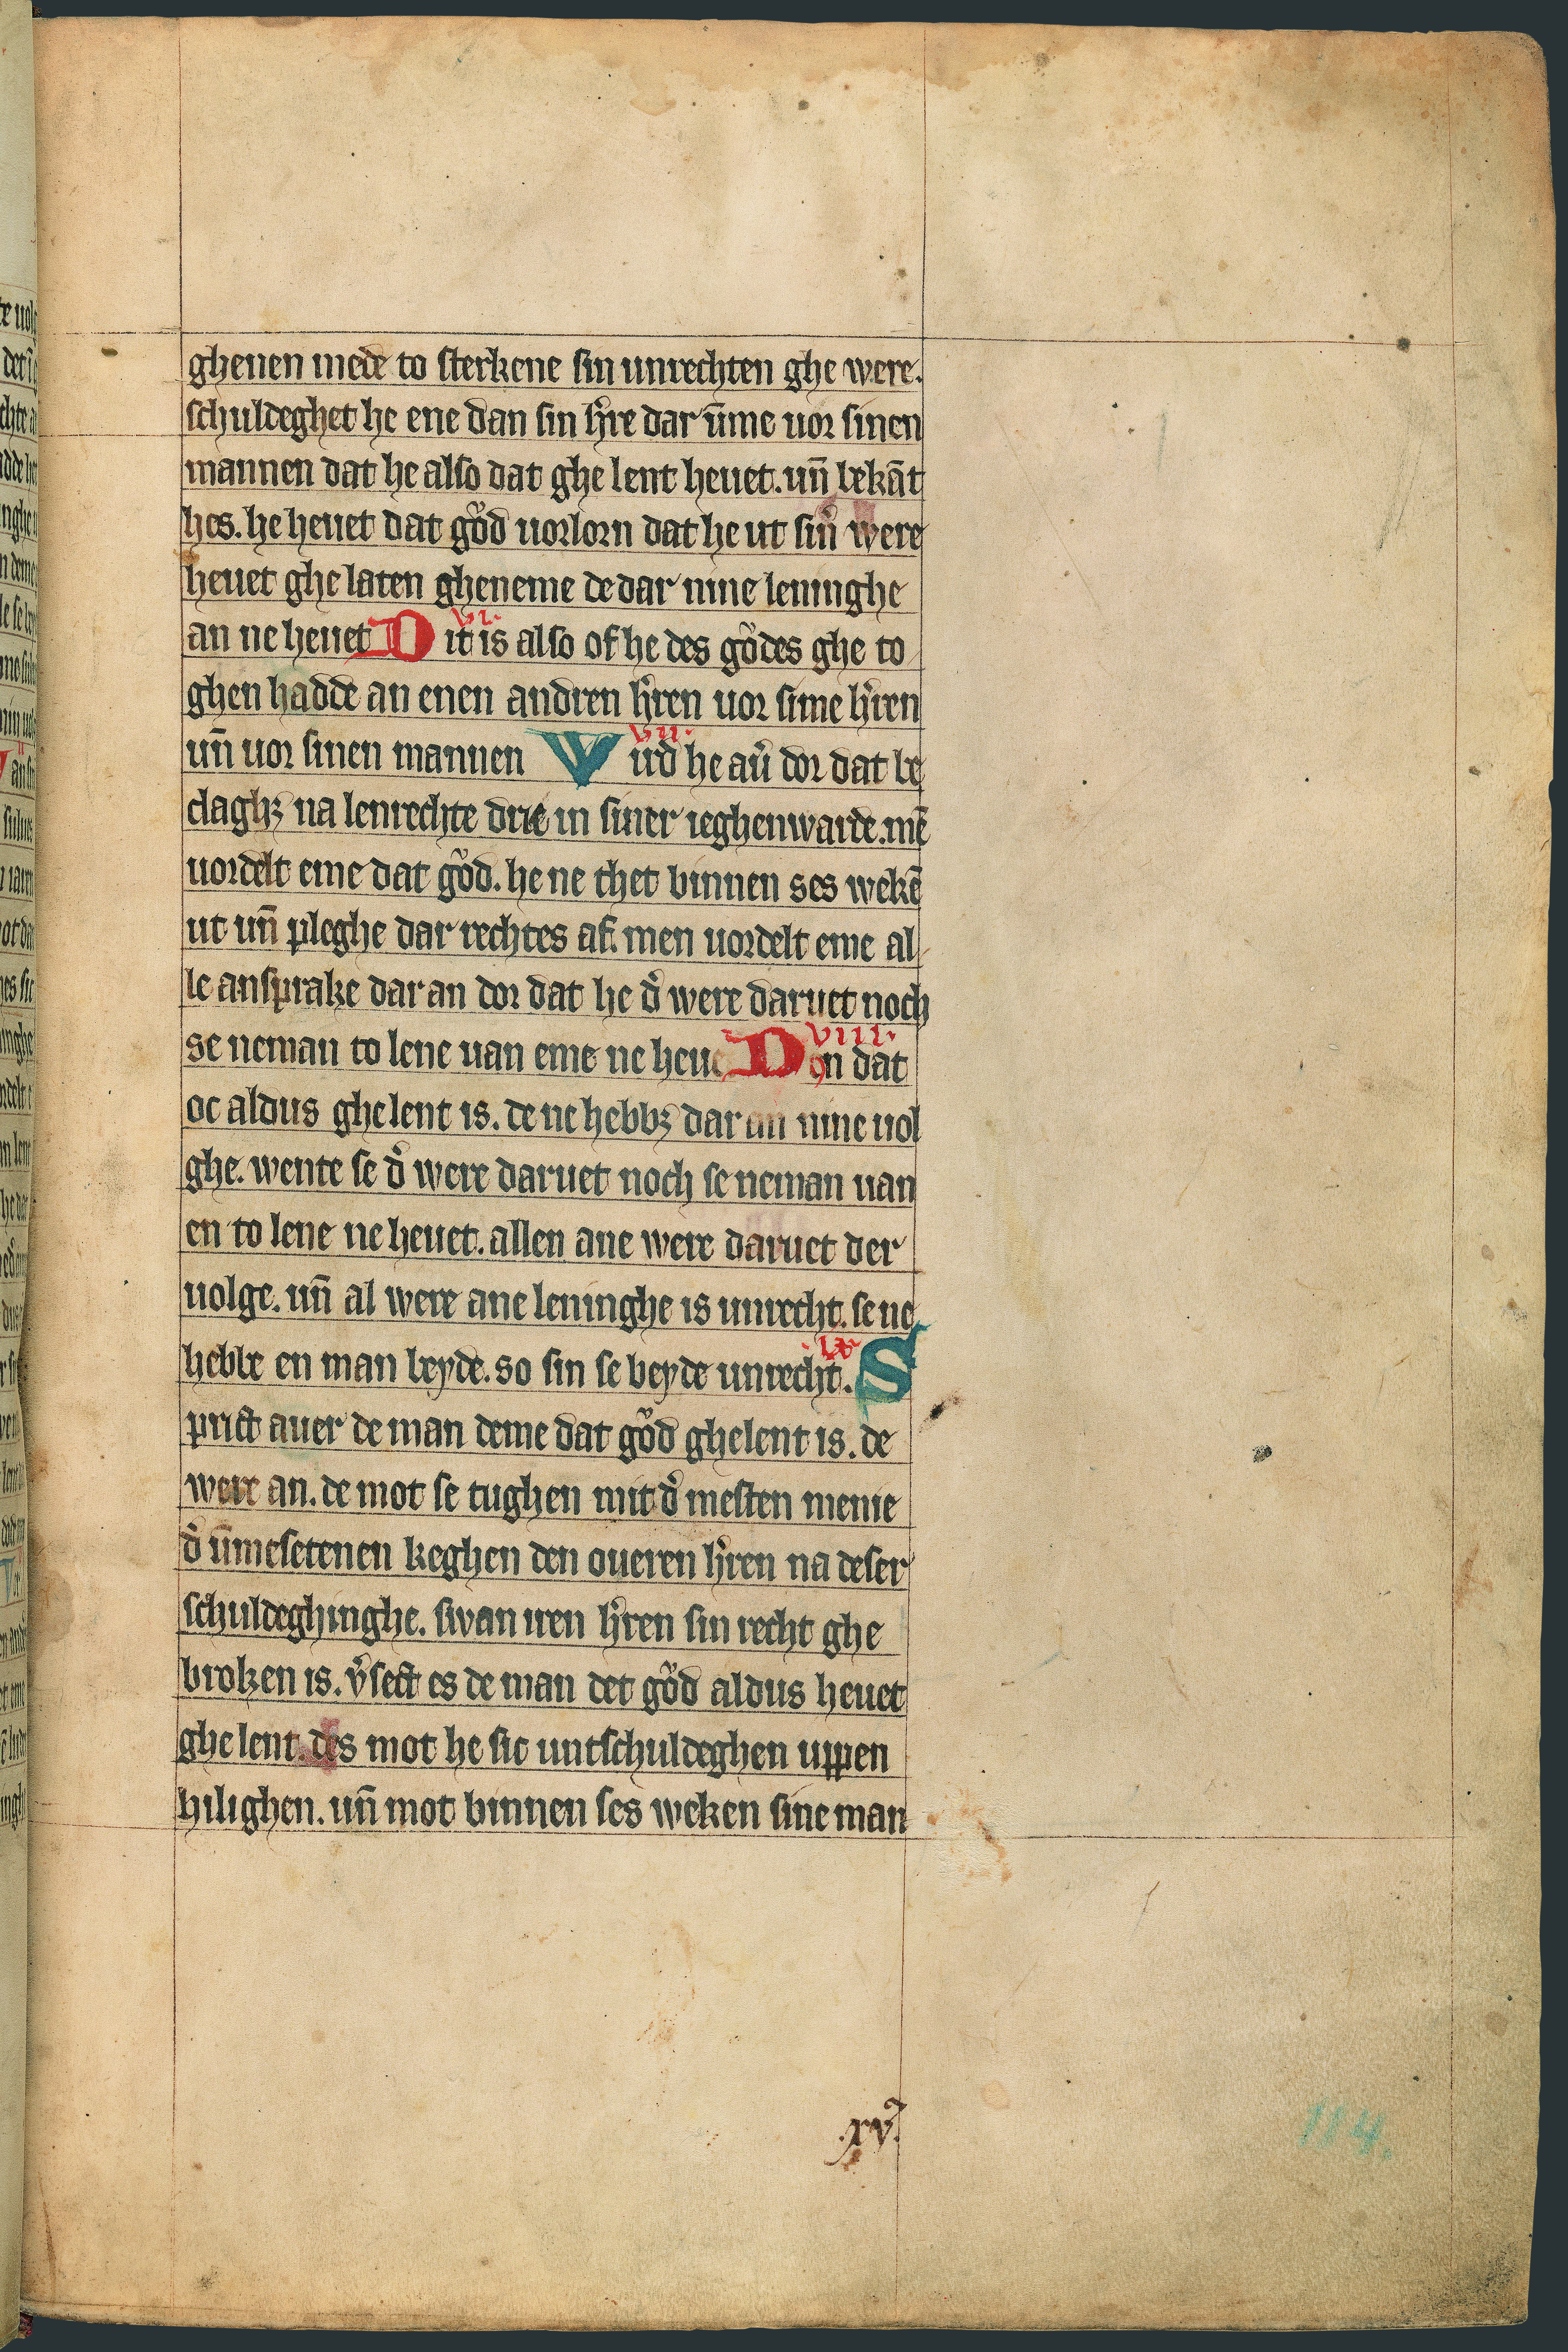 ghenen mede to sterkene sin unrechten ghe were.
schuldeghet he ene dan sin h̕re dar ūme uor sinen
mannen dat he also dat ghe lent heuet. un̄ bekāt
hes. he heuet dat gůd uorlorn dat he ut sin̕ were
heuet ghe laten gheneme de dar nine leninghe
an ne heuet D vi. it is also of he des gůdes ghe to
ghen hadde an enen andren h̕ren uor sime h̕ren
un̄ uor sinen mannen W vii. ūrd he au̕ dor dat be
claghꝫ na lenrechte drie in siner ieghenwarde. mē
uordelt eme dat gůd. he ne thet binnen ses wekē
ut un̄ pleghe dar rechtes af. men uordelt eme al
le ansprake dar an dor dat he d̕ were daruet noch
se neman to lene uan eme ne heue D viii. en dat
oc aldus ghe lent is. de ne hebbꝫ dar an nine uol
ghe. wente se d̕ were daruet noch se neman uan
en to lene ne heuet. allen ane were daruet der
uolge. un̄ al were ane leninghe is unrecht. se ne
hebbe en man beyde. so sin se beyde unrecht. ix S
prict auer de man deme dat gůd ghelent is. de
were an. de mot se tughen mit d̕ mesten menie
d̕ ūmesetenen keghen den oueren h̕ren na deser
schuldeghinghe. swan iren h̕ren sin recht ghe
broken is. v̕sect es de man det gůd aldus heuet
ghe lent. des mot he sic untschuldeghen uppen
hilighen. un̄ mot binnen ses weken sine man
.xv.
114.